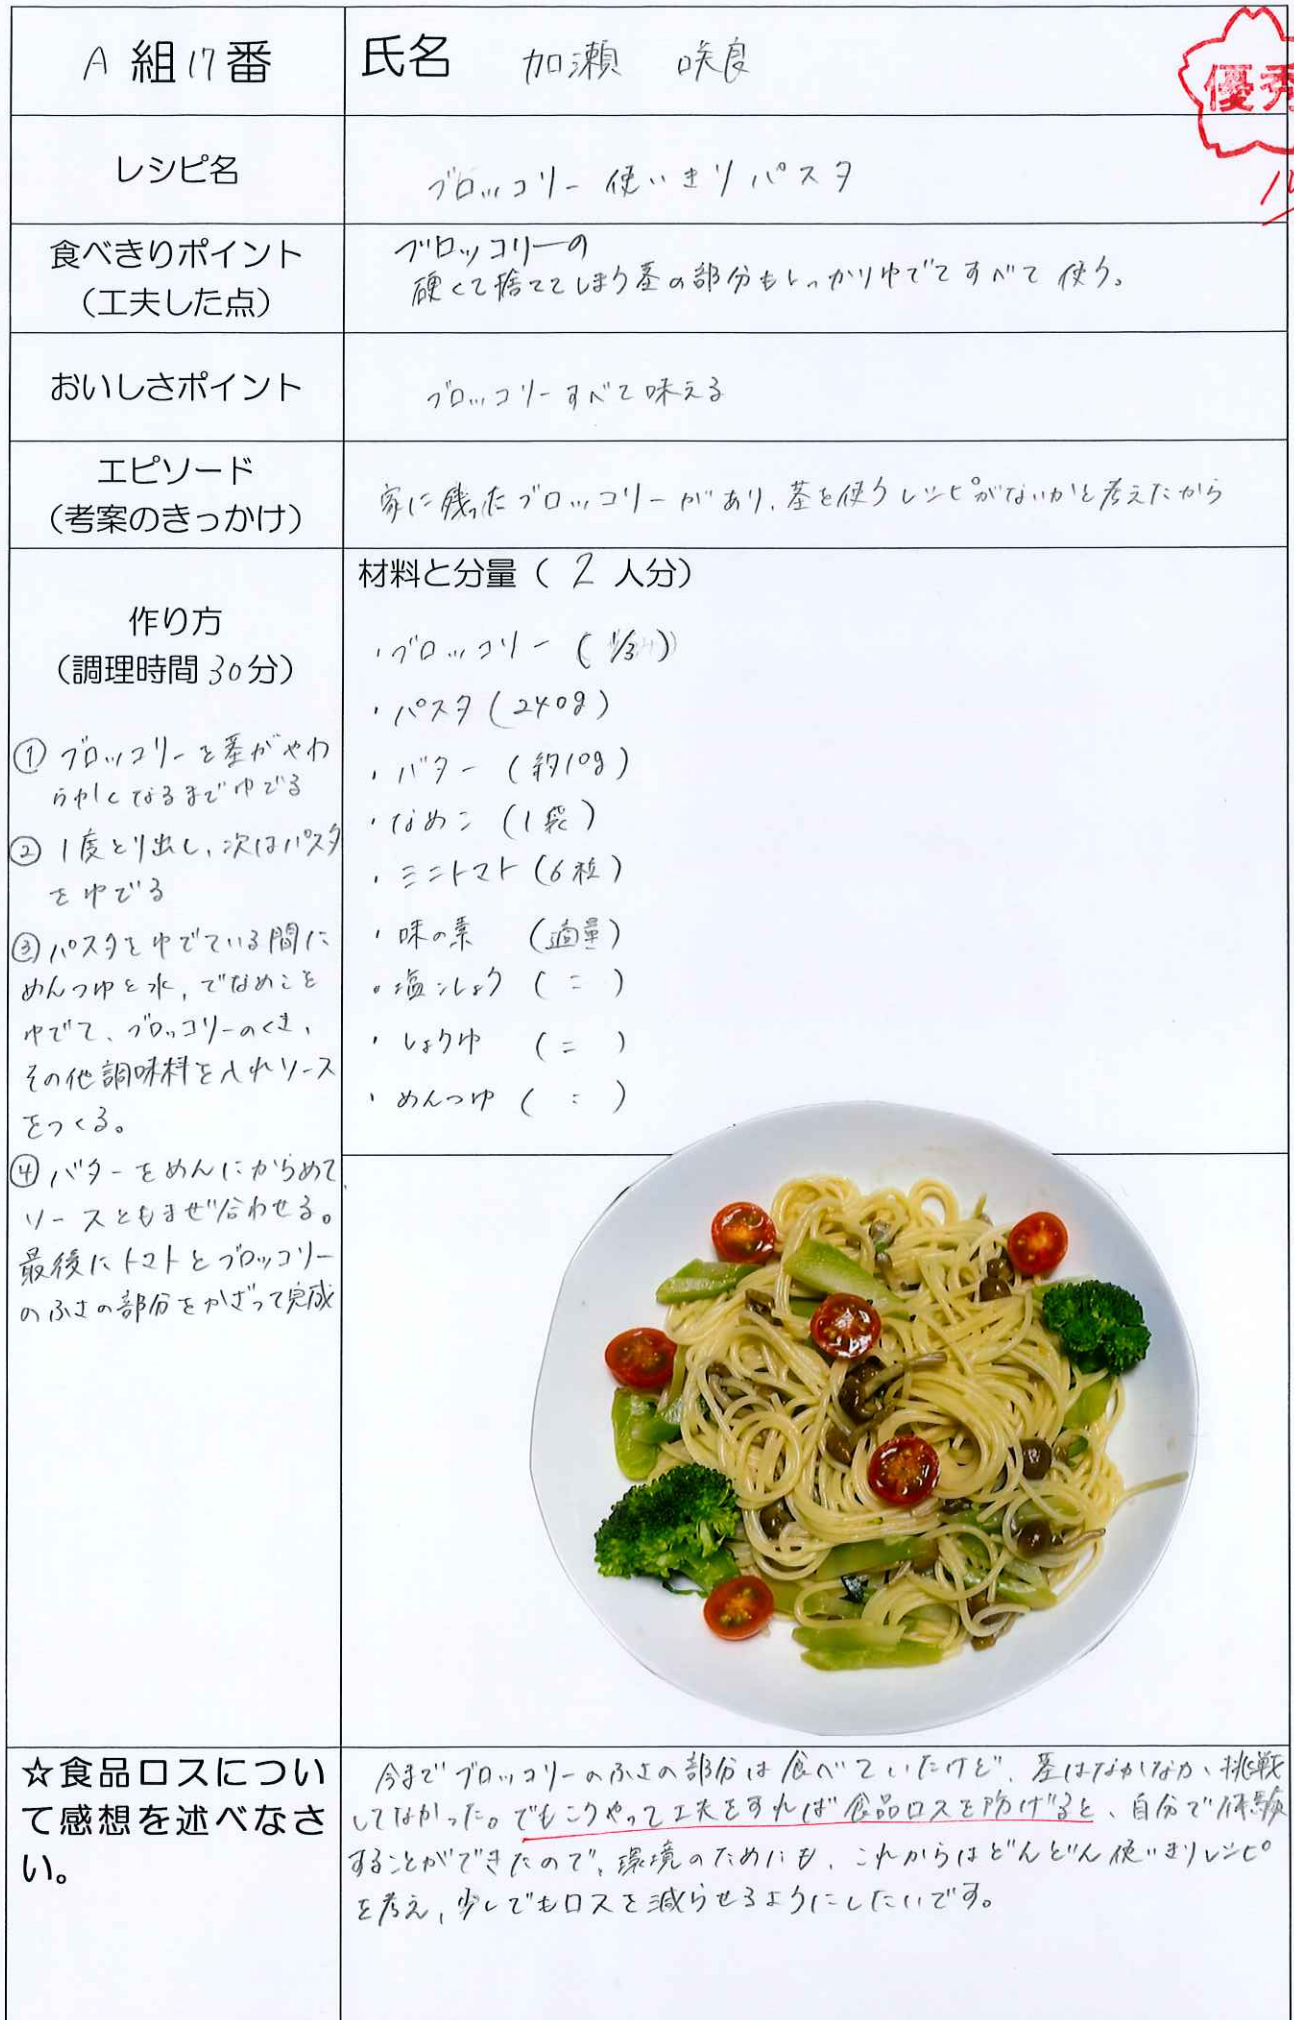 A 組 17 番
氏名 加瀬 咲良
優秀
レシピ名
ブロッコリー 使いきり パスタ
食べきりポイント
（工夫した点）
ブロッコリーの
硬くて捨ててしまう茎の部分もしっかりゆでてすべて使う。
おいしさポイント
ブロッコリーすべて味える
エピソード
（考案のきっかけ）
家に残ったブロッコリーがあり、茎を使うレシピがないかと考えたから
作り方
（調理時間 30分）
① ブロッコリーを茎がやわ
らかくなるまでゆでる
② 1度とり出し、次はパスタ
をゆでる
③ パスタをゆでている間に
めんつゆと水、でなめこを
ゆでて、ブロッコリーのくき、
その他調味料を入れソース
をつくる。
④ バターをめんにからめて
ソースともまぜ合わせる。
最後にトマトとブロッコリー
のふさの部分をかざって完成
材料と分量（ 2 人分）
・ブロッコリー ( 1/3 )
・パスタ (240g)
・バター (約10g)
・なめこ (1袋)
・ミニトマト (6粒)
・味の素 (適量)
・塩こしょう ( 〃 )
・しょうゆ ( 〃 )
・めんつゆ ( 〃 )
☆食品ロスについ
て感想を述べなさ
い。
今までブロッコリーのふさの部分は食べていたけど、茎はなかなか挑戦
してなかった。でもこうやって工夫をすれば食品ロスを防げると、自分で体験
することができたので、環境のためにも、これからはどんどん使いきりレシピ
を考え、少しでもロスを減らせるようにしたいです。